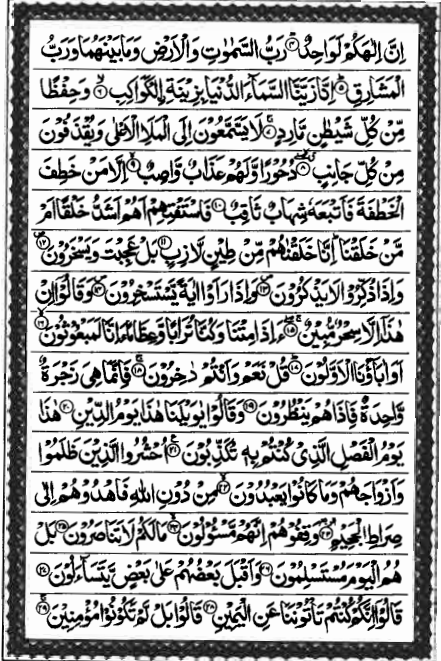 اِنَّ اِلٰهَكُمْ لَوَاحِدٌ ؕ﴿۴﴾ رَبُّ السَّمٰوٰتِ وَالْاَرْضِ وَمَا بَيْنَهُمَا وَرَبُّ
الْمَشَارِقِ ؕ﴿۵﴾ اِنَّا زَيَّنَّا السَّمَآءَ الدُّنْيَا بِزِيْنَةِ ۨالْكَوَاكِبِ ۙ﴿۶﴾ وَحِفْظًا
مِّنْ كُلِّ شَيْطٰنٍ مَّارِدٍ ۚ﴿۷﴾ لَا يَسَّمَّعُوْنَ اِلَى الْمَلَاِ الْاَعْلٰى وَيُقْذَفُوْنَ
مِنْ كُلِّ جَانِبٍ ۖ﴿۸﴾ دُحُوْرًا وَّلَهُمْ عَذَابٌ وَّاصِبٌ ۙ﴿۹﴾ اِلَّا مَنْ خَطِفَ
الْخَطْفَةَ فَاَتْبَعَهٗ شِهَابٌ ثَاقِبٌ ﴿۱۰﴾ فَاسْتَفْتِهِمْ اَهُمْ اَشَدُّ خَلْقًا اَمْ
مَّنْ خَلَقْنَا ؕ اِنَّا خَلَقْنٰهُمْ مِّنْ طِيْنٍ لَّازِبٍ ﴿۱۱﴾ بَلْ عَجِبْتَ وَيَسْخَرُوْنَ ۪﴿۱۲﴾
وَاِذَا ذُكِّرُوْا لَا يَذْكُرُوْنَ ۪﴿۱۳﴾ وَاِذَا رَاَوْا اٰيَةً يَّسْتَسْخِرُوْنَ ۪﴿۱۴﴾ وَقَالُوْٓا اِنْ
هٰذَآ اِلَّا سِحْرٌ مُّبِيْنٌ ۚۖ﴿۱۵﴾ ءَاِذَا مِتْنَا وَكُنَّا تُرَابًا وَّعِظَامًا ءَاِنَّا لَمَبْعُوْثُوْنَ ۙ﴿۱۶﴾
اَوَاٰبَآؤُنَا الْاَوَّلُوْنَ ؕ﴿۱۷﴾ قُلْ نَعَمْ وَاَنْتُمْ دٰخِرُوْنَ ۚ﴿۱۸﴾ فَاِنَّمَا هِيَ زَجْرَةٌ
وَّاحِدَةٌ فَاِذَا هُمْ يَنْظُرُوْنَ ﴿۱۹﴾ وَقَالُوْا يٰوَيْلَنَا هٰذَا يَوْمُ الدِّيْنِ ﴿۲۰﴾ هٰذَا
يَوْمُ الْفَصْلِ الَّذِيْ كُنْتُمْ بِهٖ تُكَذِّبُوْنَ ﴿۲۱﴾ اُحْشُرُوا الَّذِيْنَ ظَلَمُوْا
وَاَزْوَاجَهُمْ وَمَا كَانُوْا يَعْبُدُوْنَ ۙ﴿۲۲﴾ مِنْ دُوْنِ اللّٰهِ فَاهْدُوْهُمْ اِلٰى
صِرَاطِ الْجَحِيْمِ ﴿۲۳﴾ وَقِفُوْهُمْ اِنَّهُمْ مَّسْـُٔوْلُوْنَ ۙ﴿۲۴﴾ مَا لَكُمْ لَا تَنَاصَرُوْنَ ﴿۲۵﴾ بَلْ
هُمُ الْيَوْمَ مُسْتَسْلِمُوْنَ ﴿۲۶﴾ وَاَقْبَلَ بَعْضُهُمْ عَلٰى بَعْضٍ يَّتَسَآءَلُوْنَ ﴿۲۷﴾
قَالُوْٓا اِنَّكُمْ كُنْتُمْ تَاْتُوْنَنَا عَنِ الْيَمِيْنِ ﴿۲۸﴾ قَالُوْا بَلْ لَّمْ تَكُوْنُوْا مُؤْمِنِيْنَ ۚ﴿۲۹﴾